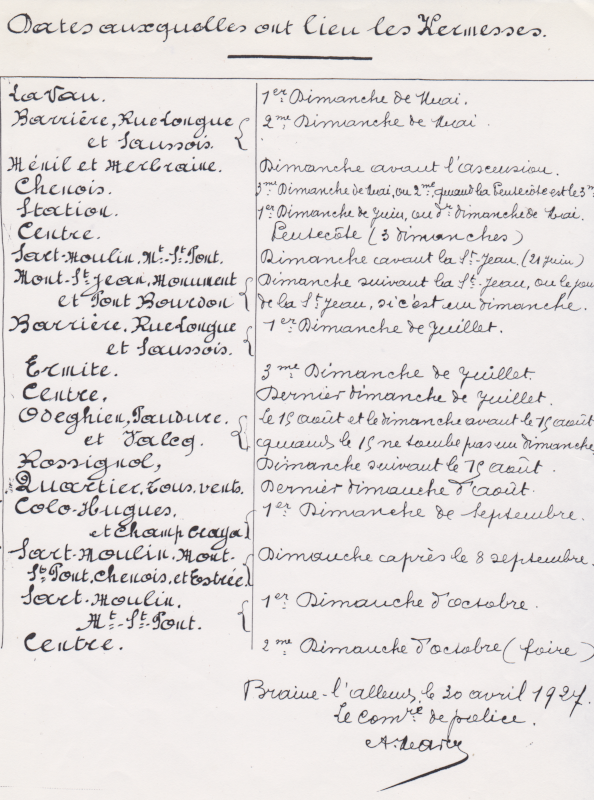 Dates auxquelles ont lieu les Kermesses.
La Vau. 1er Dimanche de Mai.
Barrière, Rue Longue 2me Dimanche de Mai.
et Saussois.
Ménil et Merbraine. Dimanche avant l'ascension.
Chenois. 3me Dimanche de Mai, ou 2me quand la Pentecôte est le 3m
Station. 1er Dimanche de Juin, ou dr dimanche de Mai.
Centre. Pentecôte (3 dimanches)
Sart-Moulin, Mt-St-Pont. Dimanche avant la St-Jean, (21 juin)
Mont-St-Jean, Monument Dimanche suivant la St-Jean, ou le jour
et Pont Bourdon de la St Jean, si c'est un dimanche.
Barrière, Rue Longue 1er Dimanche de Juillet.
et Saussois.
Ermite. 3me Dimanche de Juillet.
Centre. Dernier dimanche de Juillet.
Odeghien, Paudure. le 15 août et le dimanche avant le 15 août
et Valcq. quand le 15 ne tombe pas un dimanche
Rossignol, Dimanche suivant le 15 août.
Quartier. Tous. vents. Dernier dimanche d'août.
Colo-Hugues, 1er Dimanche de Septembre.
et Champ Craya
Sart-Moulin, Mont- Dimanche après le 8 septembre.
St Pont, Chenois, et Estrée
Sart-Moulin. 1er Dimanche d'octobre.
Mt-St-Pont.
Centre. 2me Dimanche d'octobre (foire)
Braine-l'alleud, le 30 avril 1927.
Le comre de police.